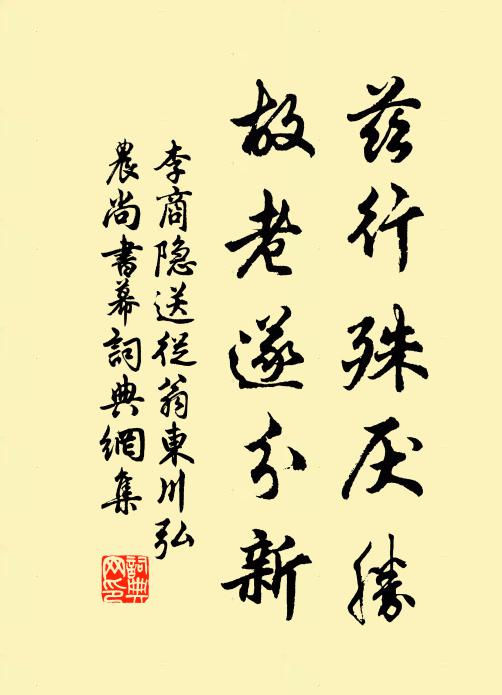 茲行殊厌勝
故老遂分新
李商隐送從翁東川弘
農尚書幕詞典網集
詞典网印